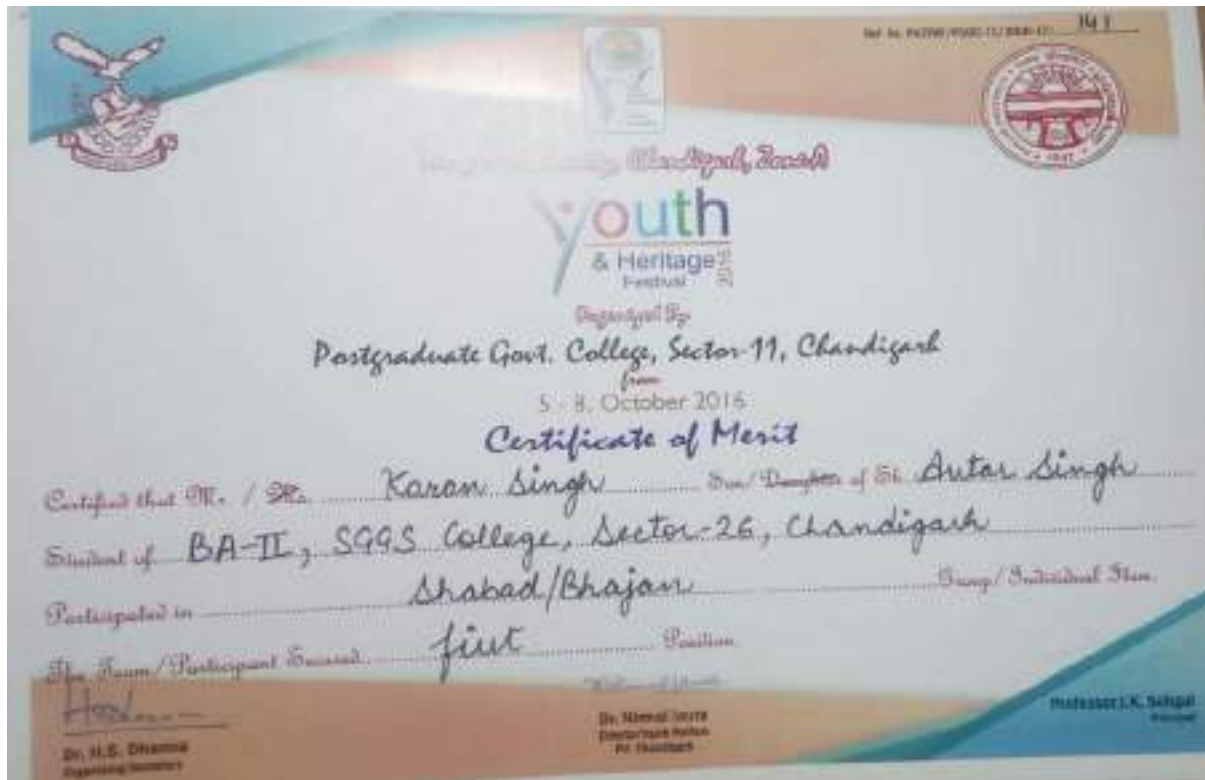 141
Chandigarh, Zone-A
Youth
& Heritage
Festival
Organized By
Postgraduate Govt. College, Sector-11, Chandigarh
from
5 - 8, October 2016
Certificate of Merit
Certified that Mr. / Ms. Karan Singh Son/Daughter of Sh. Autar Singh
Student of BA-II, SGGS College, Sector-26, Chandigarh
Participated in Shabad/Bhajan Group/Individual Item.
The Team/Participant Secured first Position
Dr. H.S.
Organising Secretary
Dr. Nirmal
Professor J.K. Sehgal
Principal
1947